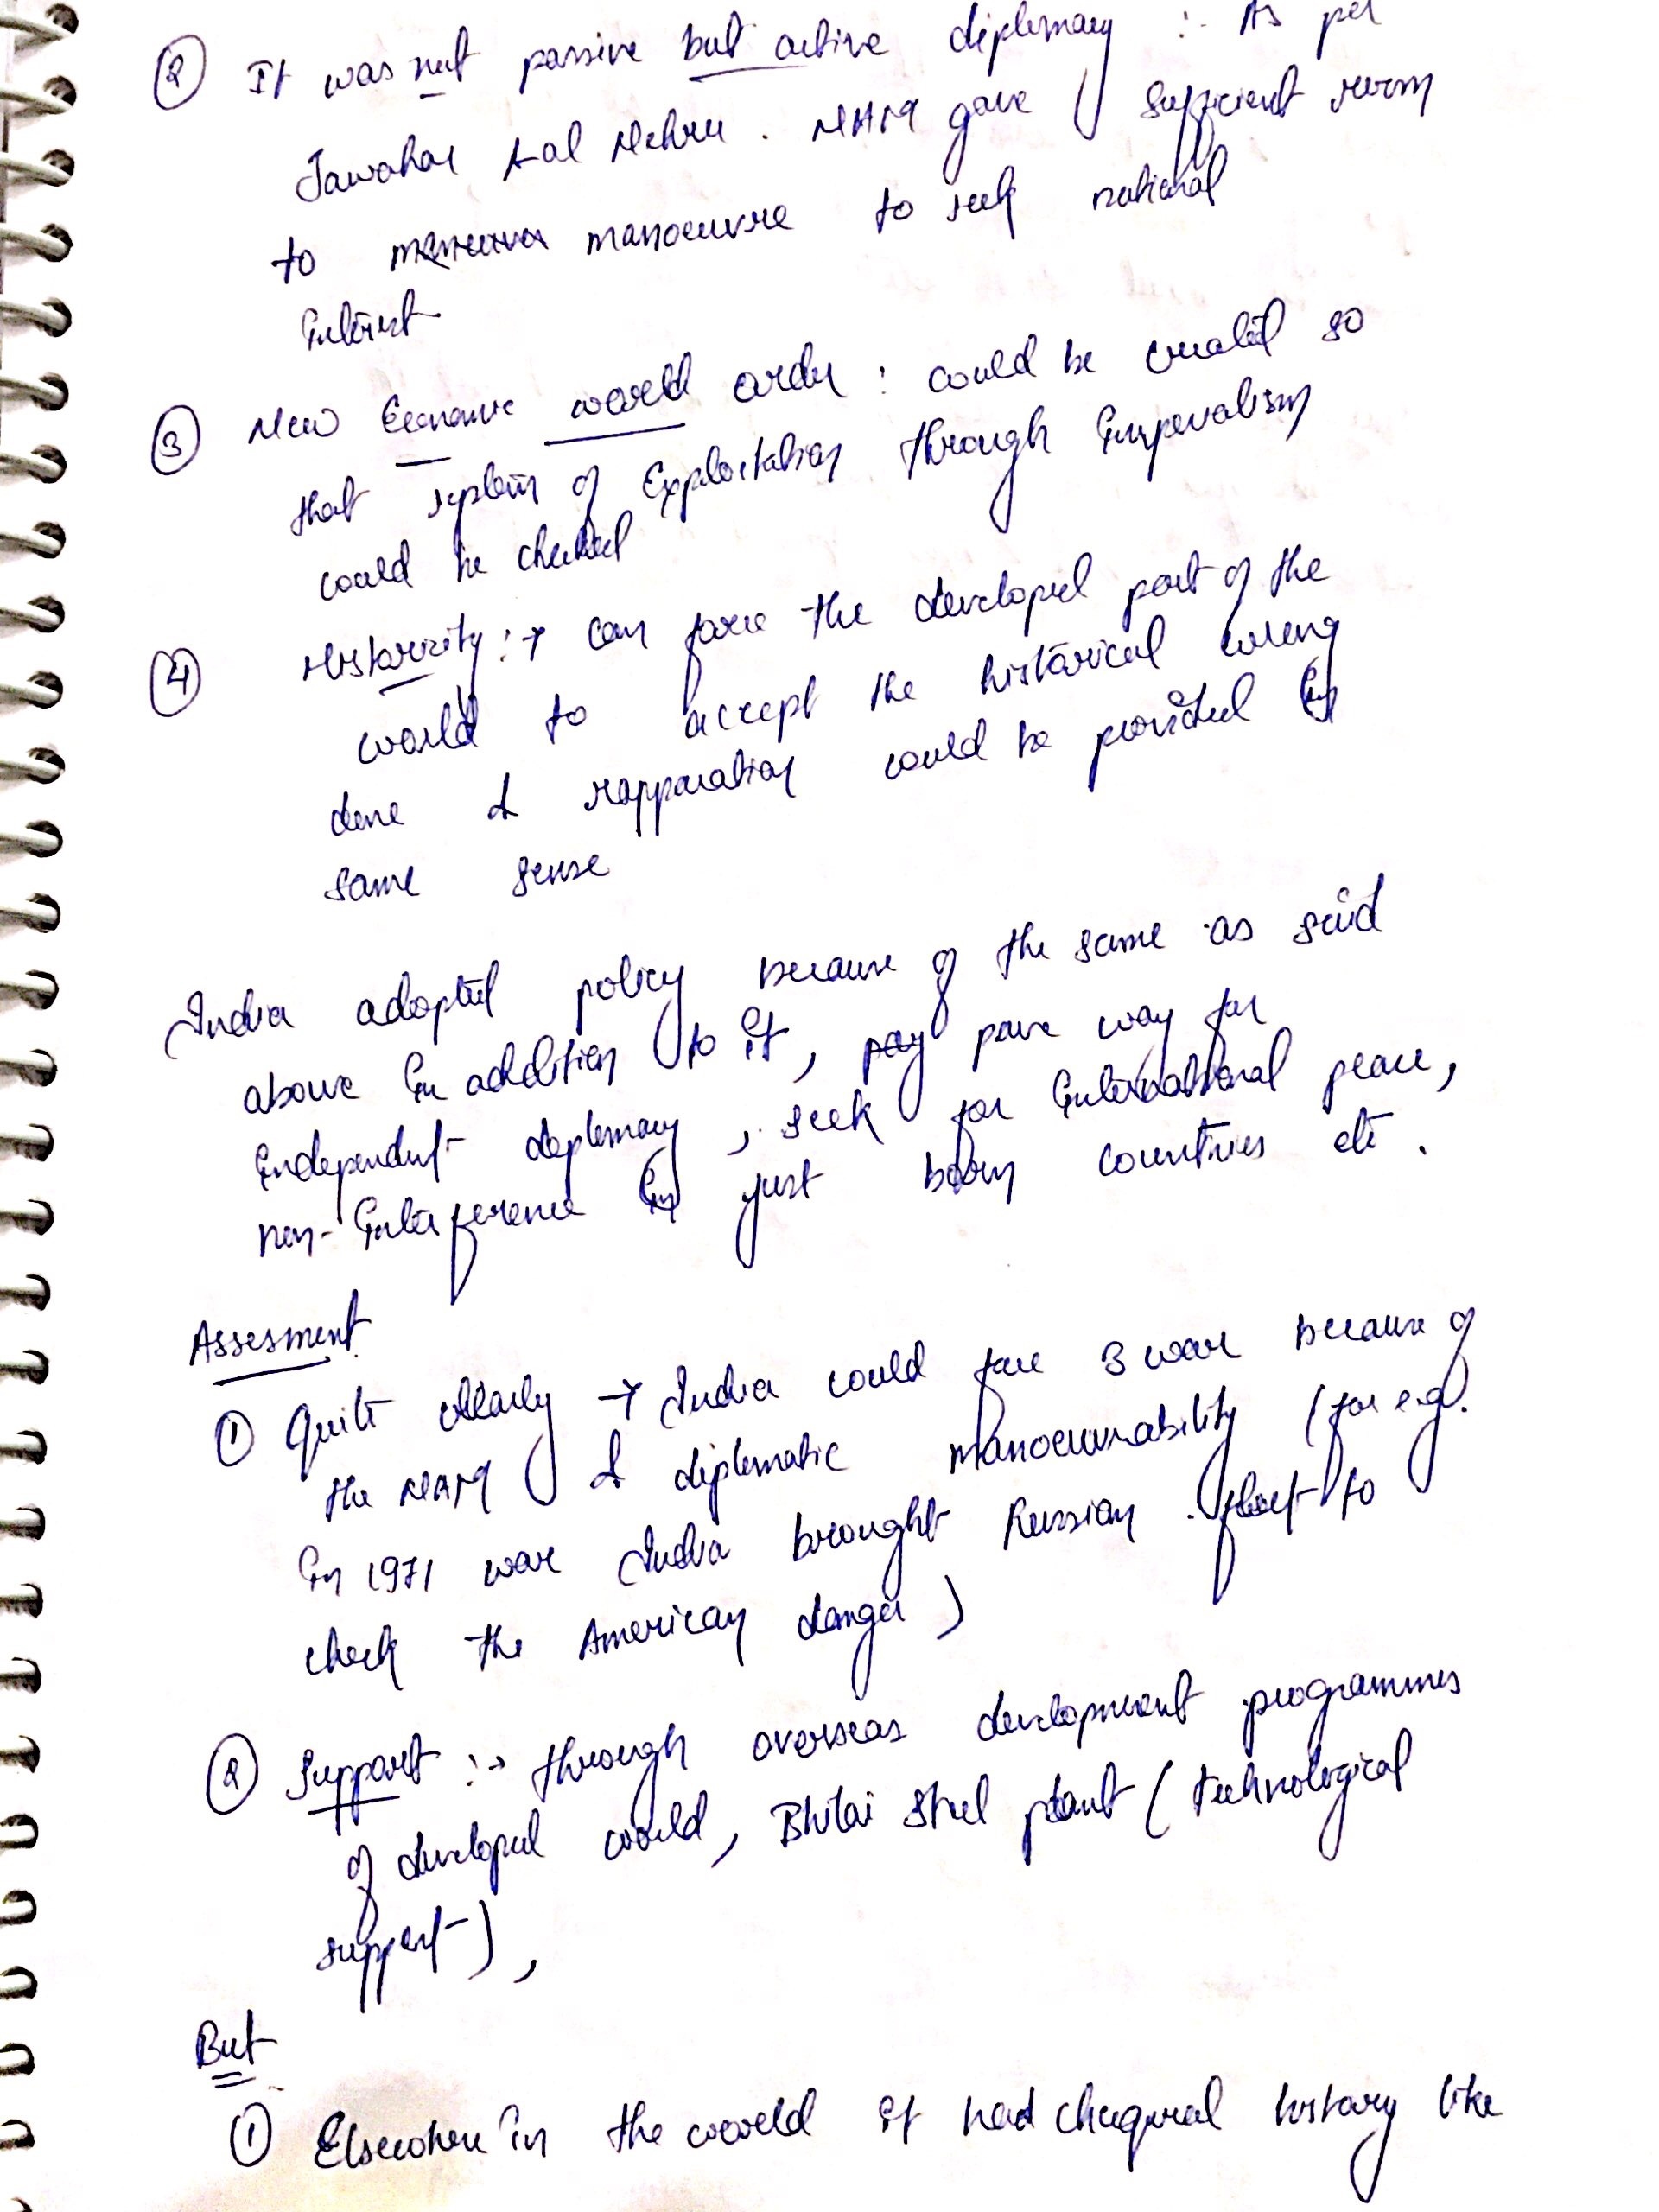 ② It was not passive but active diplomacy :- As per
Jawahar Lal Nehru . NAM gave sufficient room
to manoeuvre to seek national
interest
③ New Economic world order : could be created so
that system of Exploitation through Imperialism
could be checked
④ Historicity :→ can force the developed part of the
world to accept the historical wrong
done & rapparation could be provided in
same sense
India adopted policy because of the same as said
above in addition to it, pay pave way for
independent diplomacy, seek for international peace,
non-interference in just born countries etc.
Assesment
① Quite clearly → India could face 3 war because of
the NAM & diplomatic manoeuvrability (for e.g.
in 1971 war India brought Russian fleet to
check the American danger)
② Support :→ through overseas development programmes
of developed world, Bhilai Steel plant (technological
support),
But
① Elsewhere in the world it had chequred history like